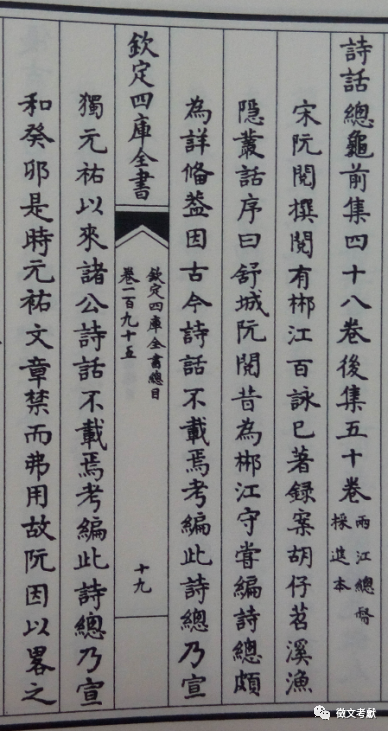 詩話總龜前集四十八卷後集五十卷
兩江總督
採進本
宋阮閱撰閱有郴江百詠已著錄案胡仔苕溪漁
隱叢話序曰舒城阮閱昔為郴江守嘗編詩總頗
為詳備葢因古今詩話不載焉考編此詩總乃宣
欽定四庫全書
欽定四庫全書總目
卷二百九十五
十九
獨元祐以來諸公詩話不載焉考編此詩總乃宣
和癸卯是時元祐文章禁而弗用故阮因以畧之
徵文考獻